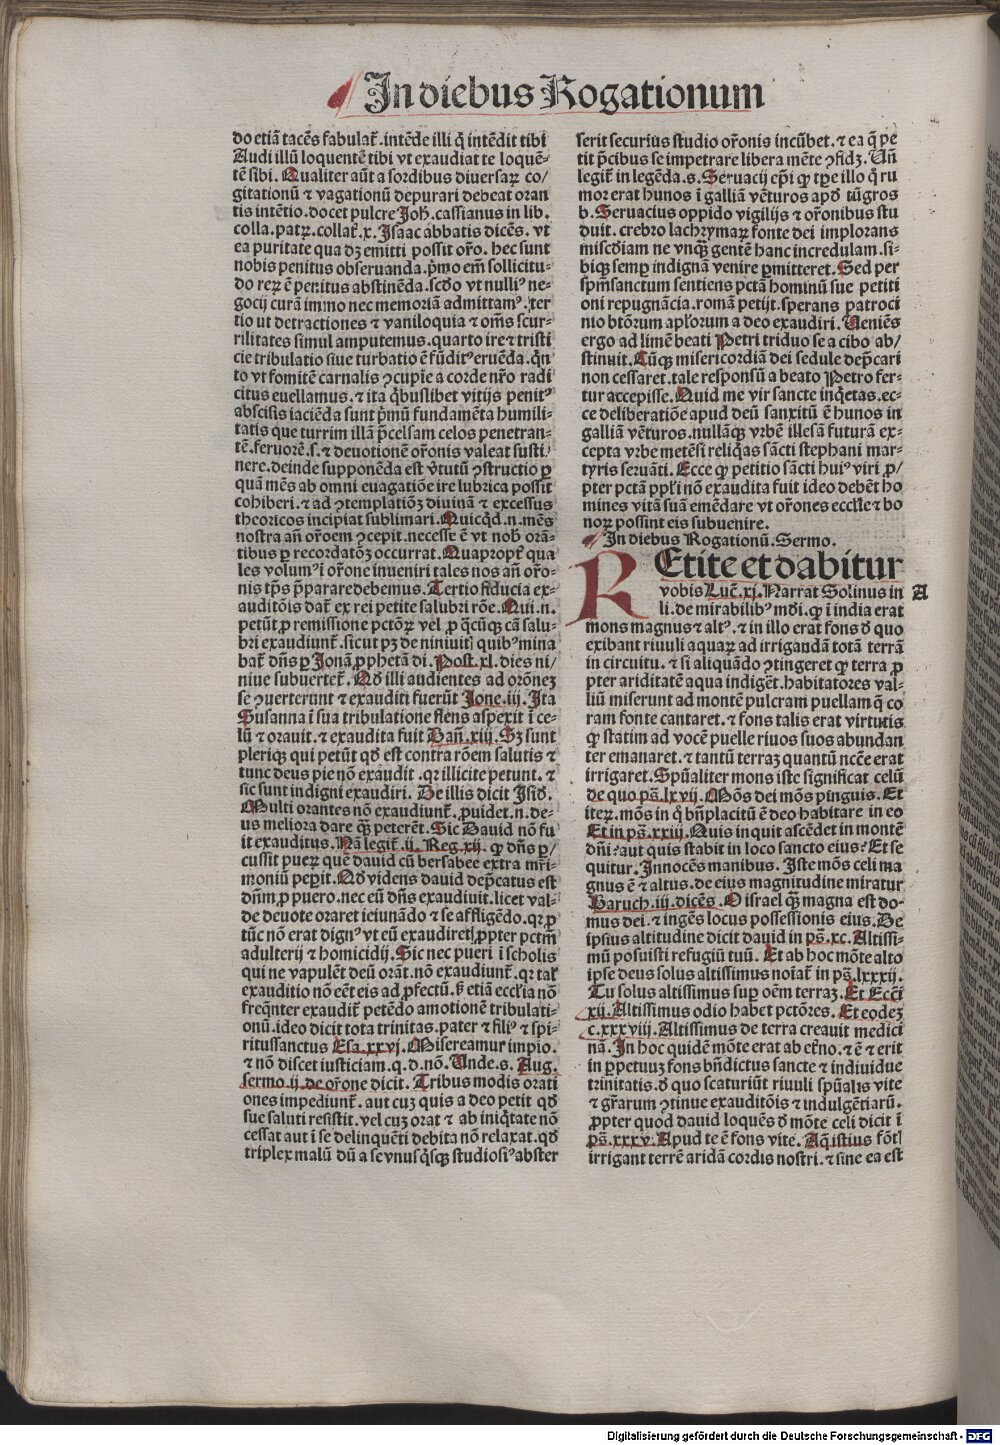 In diebus Rogationum
do etiã tacẽs fabulat᷑. intẽde illi q̃ intẽdit tibi
Audi illũ loquentẽ tibi vt exaudiat te loquẽ⸗
tẽ sibi. Qualiter aũt a sordibus diuersaꝝ co/
gitationũ ⁊ vagationũ depurari debeat oran
tis intẽtio. docet pulcre Joh̃. cassianus in lib.
colla. patꝝ. collat᷑. x. Isaac abbatis dicẽs. vt
ea puritate qua dꝫ emitti possit or̃o. hec sunt
nobis penitus obseruanda. p̃mo em̃ sollicitu⸗
do reꝝ ẽ penitus abstinẽda. scd̃o vt nulliꝰ ne⸗
gocij curã immo nec memoriã admittamꝰ. ter
tio ut detractiones ⁊ vaniloquia ⁊ om̃s scur⸗
rilitates simul amputemus. quarto ire ⁊ tristi
cie tribulatio siue turbatio ẽ fũditꝰ eruẽda. q̃n
to vt fomitẽ carnalis ꝯcupĩe a corde nr̃o radi
citus euellamus. ⁊ ita q̃buslibet vitijs penitꝰ
abscisis iaciẽda sunt p̃mũ fundamẽta humili⸗
tatis que turrim illã p̃celsam celos penetran⸗
tẽ. feruorẽ. s. ⁊ deuotionẽ or̃onis valeat susti⸗
nere. deinde supponẽda est v̾tutũ ꝯstructio ꝑ
quã mẽs ab omni euagatiõe ire lubrica possit
cohiberi. ⁊ ad ꝯtemplatiõꝫ diuinã ⁊ excessus
theoricos incipiat sublimari. Quicq̃d. n. mẽs
nostra añ or̃oem ꝯcepit. necesse ẽ vt nob̾ orã⸗
tibus ꝑ recordatõꝫ occurrat. Quapropt̾ qua
les volumꝰ ĩ or̃one inueniri tales nos añ or̃o⸗
nis tp̃s p̃parare debemus. Tertio fiducia ex⸗
auditõis dat᷑ ex rei petite salubri rõe. Qui. n.
petũt ꝓ remissione pctõꝝ vel ꝓ q̃cũqꝫ cã salu⸗
bri exaudiunt᷑. sicut pꝫ de niniuit̃ quibꝰ mina
bat᷑ dñs ꝑ Jonã ꝓphetã di. Post. xl. dies ni/
niue subuertet᷑. Qd̾ illi audientes ad orõneꝫ
se ꝯuerterunt ⁊ exauditi fuerũt Jone. iij. Ita
Susanna ĩ sua tribulatione flens aspexit ĩ ce⸗
lũ ⁊ orauit. ⁊ exaudita fuit Dañ. xiij. Sꝫ sunt
pleriqꝫ qui petũt qd̾ est contra rõem salutis ⁊
tunc deus pie nõ exaudit. qꝛ illicite petunt. ⁊
sic sunt indigni exaudiri. De illis dicit Isid̾.
Multi orantes nõ exaudiunt᷑. ꝓuidet. n. de⸗
us meliora dare q̃ꝫ peterẽt. Sic Dauid nõ fu
it exauditus. Nã legit᷑. ij. Reg. xij. ꝙ dñs ꝑ/
cussit pueꝝ quẽ dauid cũ bersabee extra mr̃i⸗
moniũ peperit. Qd̾ videns dauid dep̃catus est
dñm ꝓ puero. nec eũ dñs exaudiuit. licet val⸗
de deuote oraret ieiunãdo ⁊ se affligẽdo. qꝛ ꝑ
tũc nõ erat dignꝰ vt eũ exaudiret ꝓpter pctm̃
adulterij ⁊ homicidij. Sic nec pueri ĩ scholis
qui ne vapulẽt deũ orãt. nõ exaudiunt᷑. qꝛ tal̾
exauditio nõ eẽt eis ad ꝓfectũ. sꝫ etiã eccl̃ia nõ
freq̃nter exaudit᷑ petẽdo amotionẽ tribulati⸗
onũ. ideo dicit tota trinitas. pater ⁊ filiꝰ ⁊ spi⸗
ritussanctus Esa. xxvj. Misereamur impio.
⁊ nõ discet iusticiam. q. d. nõ. Unde. s. Aug.
sermo. ij. de or̃one dicit. Tribus modis orati
ones impediunt᷑. aut cuꝫ quis a deo petit qd̾
sue saluti resistit. vel cuꝫ orat ⁊ ab iniq̃tate nõ
cessat aut ĩ se delinquẽti debita nõ relaxat. qd̾
triplex malũ dũ a se vnusq̃sqꝫ studiosiꝰ abster
serit securius studio or̃onis incũbet. ⁊ ea q̃ pe
tit p̃cibus se impetrare libera mẽte ꝯfidꝫ. Uñ
legit᷑ in legẽda. s. Seruacij ep̃i ꝙ tp̃e illo q̃ ru
mor erat hunos ĩ galliã vẽturos apd̾ tũgros
b. Seruacius oppido vigilijs ⁊ or̃onibus stu
duit. crebro lachrymaꝝ fonte dei implorans
misc̃diam ne vnq̃ꝫ gentẽ hanc incredulam. si⸗
biqꝫ semꝑ indignã venire ꝑmitteret. Sed per
sp̃msanctum sentiens pctã hominũ sue petiti
oni repugnãcia. romã petijt. sperans patroci
nio btõrum apl̾orum a deo exaudiri. Ueniẽs
ergo ad limẽ beati Petri triduo se a cibo ab/
stinuit. Cũqꝫ misericordiã dei sedule dep̃cari
non cessaret. tale responsũ a beato Petro fer⸗
tur accepisse. Quid me vir sancte inq̃etas. ec⸗
ce deliberatiõe apud deũ sanxitũ ẽ hunos in
galliã vẽturos. nullãqꝫ vrbẽ illesã futurã ex⸗
cepta vrbe metẽsi reliq̃as sãcti stephani mar⸗
tyris seruãti. Ecce ꝙ petitio sãcti huiꝰ viri ꝓ/
pter pctã ppl̾i nõ exaudita fuit ideo debẽt ho
mines vitã suã emẽdare vt or̃ones eccl̃ie ⁊ bo
noꝝ possint eis subuenire.
In diebus Rogationũ. Sermo.
REtite et dabitur
vobis Luc̃. xj. Narrat Solinus in A
li. de mirabilibꝰ mũdi. ꝙ ĩ india erat
mons magnus ⁊ altꝰ. ⁊ in illo erat fons d̾ quo
exibant riuuli aquaꝝ ad irrigandã totã terrã
in circuitu. ⁊ si aliquãdo ꝯtingeret ꝙ terra ꝓ
pter ariditatẽ aqua indigẽt. habitatores val⸗
liũ miserunt ad montẽ pulcram puellam q̃ co
ram fonte cantaret. ⁊ fons talis erat virtutis
ꝙ statim ad vocẽ puelle riuos suos abundan
ter emanaret. ⁊ tantũ terraꝫ quantũ ncc̃e erat
irrigaret. Spũaliter mons iste significat celũ
de quo pš. lxvij. Mõs dei mõs pinguis. Et
iteꝝ. mõs in q̃ bñplacitũ ẽ deo habitare in eo
Et in pš. xxiij. Quis inquit ascẽdet in montẽ
dñi? aut quis stabit in loco sancto eius? Et se
quitur. Innocẽs manibus. Iste mõs celi ma
gnus ẽ ⁊ altus. de eius magnitudine miratur
Baruch. iij. dicẽs. O israel q̃ꝫ magna est do⸗
mus dei. ⁊ ingẽs locus possessionis eius. De
ipsius altitudine dicit dauid in pš. xc. Altissi⸗
mũ posuisti refugiũ tuũ. Et ab hoc mõte alto
ipse deus solus altissimus noĩat᷑ in pš. lxxxij.
Tu solus altissimus suꝑ oẽm terraꝫ. Et Ecc̃i
xij. Altissimus odio habet pctõres. Et eodeꝫ
c. xxxviij. Altissimus de terra creauit medici
nã. In hoc quidẽ mõte erat ab et̾no. ⁊ ẽ ⁊ erit
in ꝑpetuuꝫ fons bñdictus sancte ⁊ indiuidue
trinitatis. d̾ quo scaturiũt riuuli spũalis vite
⁊ gr̃arum ꝯtinue exauditõis ⁊ indulgẽtiarũ.
ꝓpter quod dauid loquẽs d̾ mõte celi dicit ĩ
pš. xxxv. Apud te ẽ fons vite. Aq̃ istius fõt̾
irrigant terrẽ aridã cordis nostri. ⁊ sine ea est
Digitalisierung gefördert durch die Deutsche Forschungsgemeinschaft - DFG